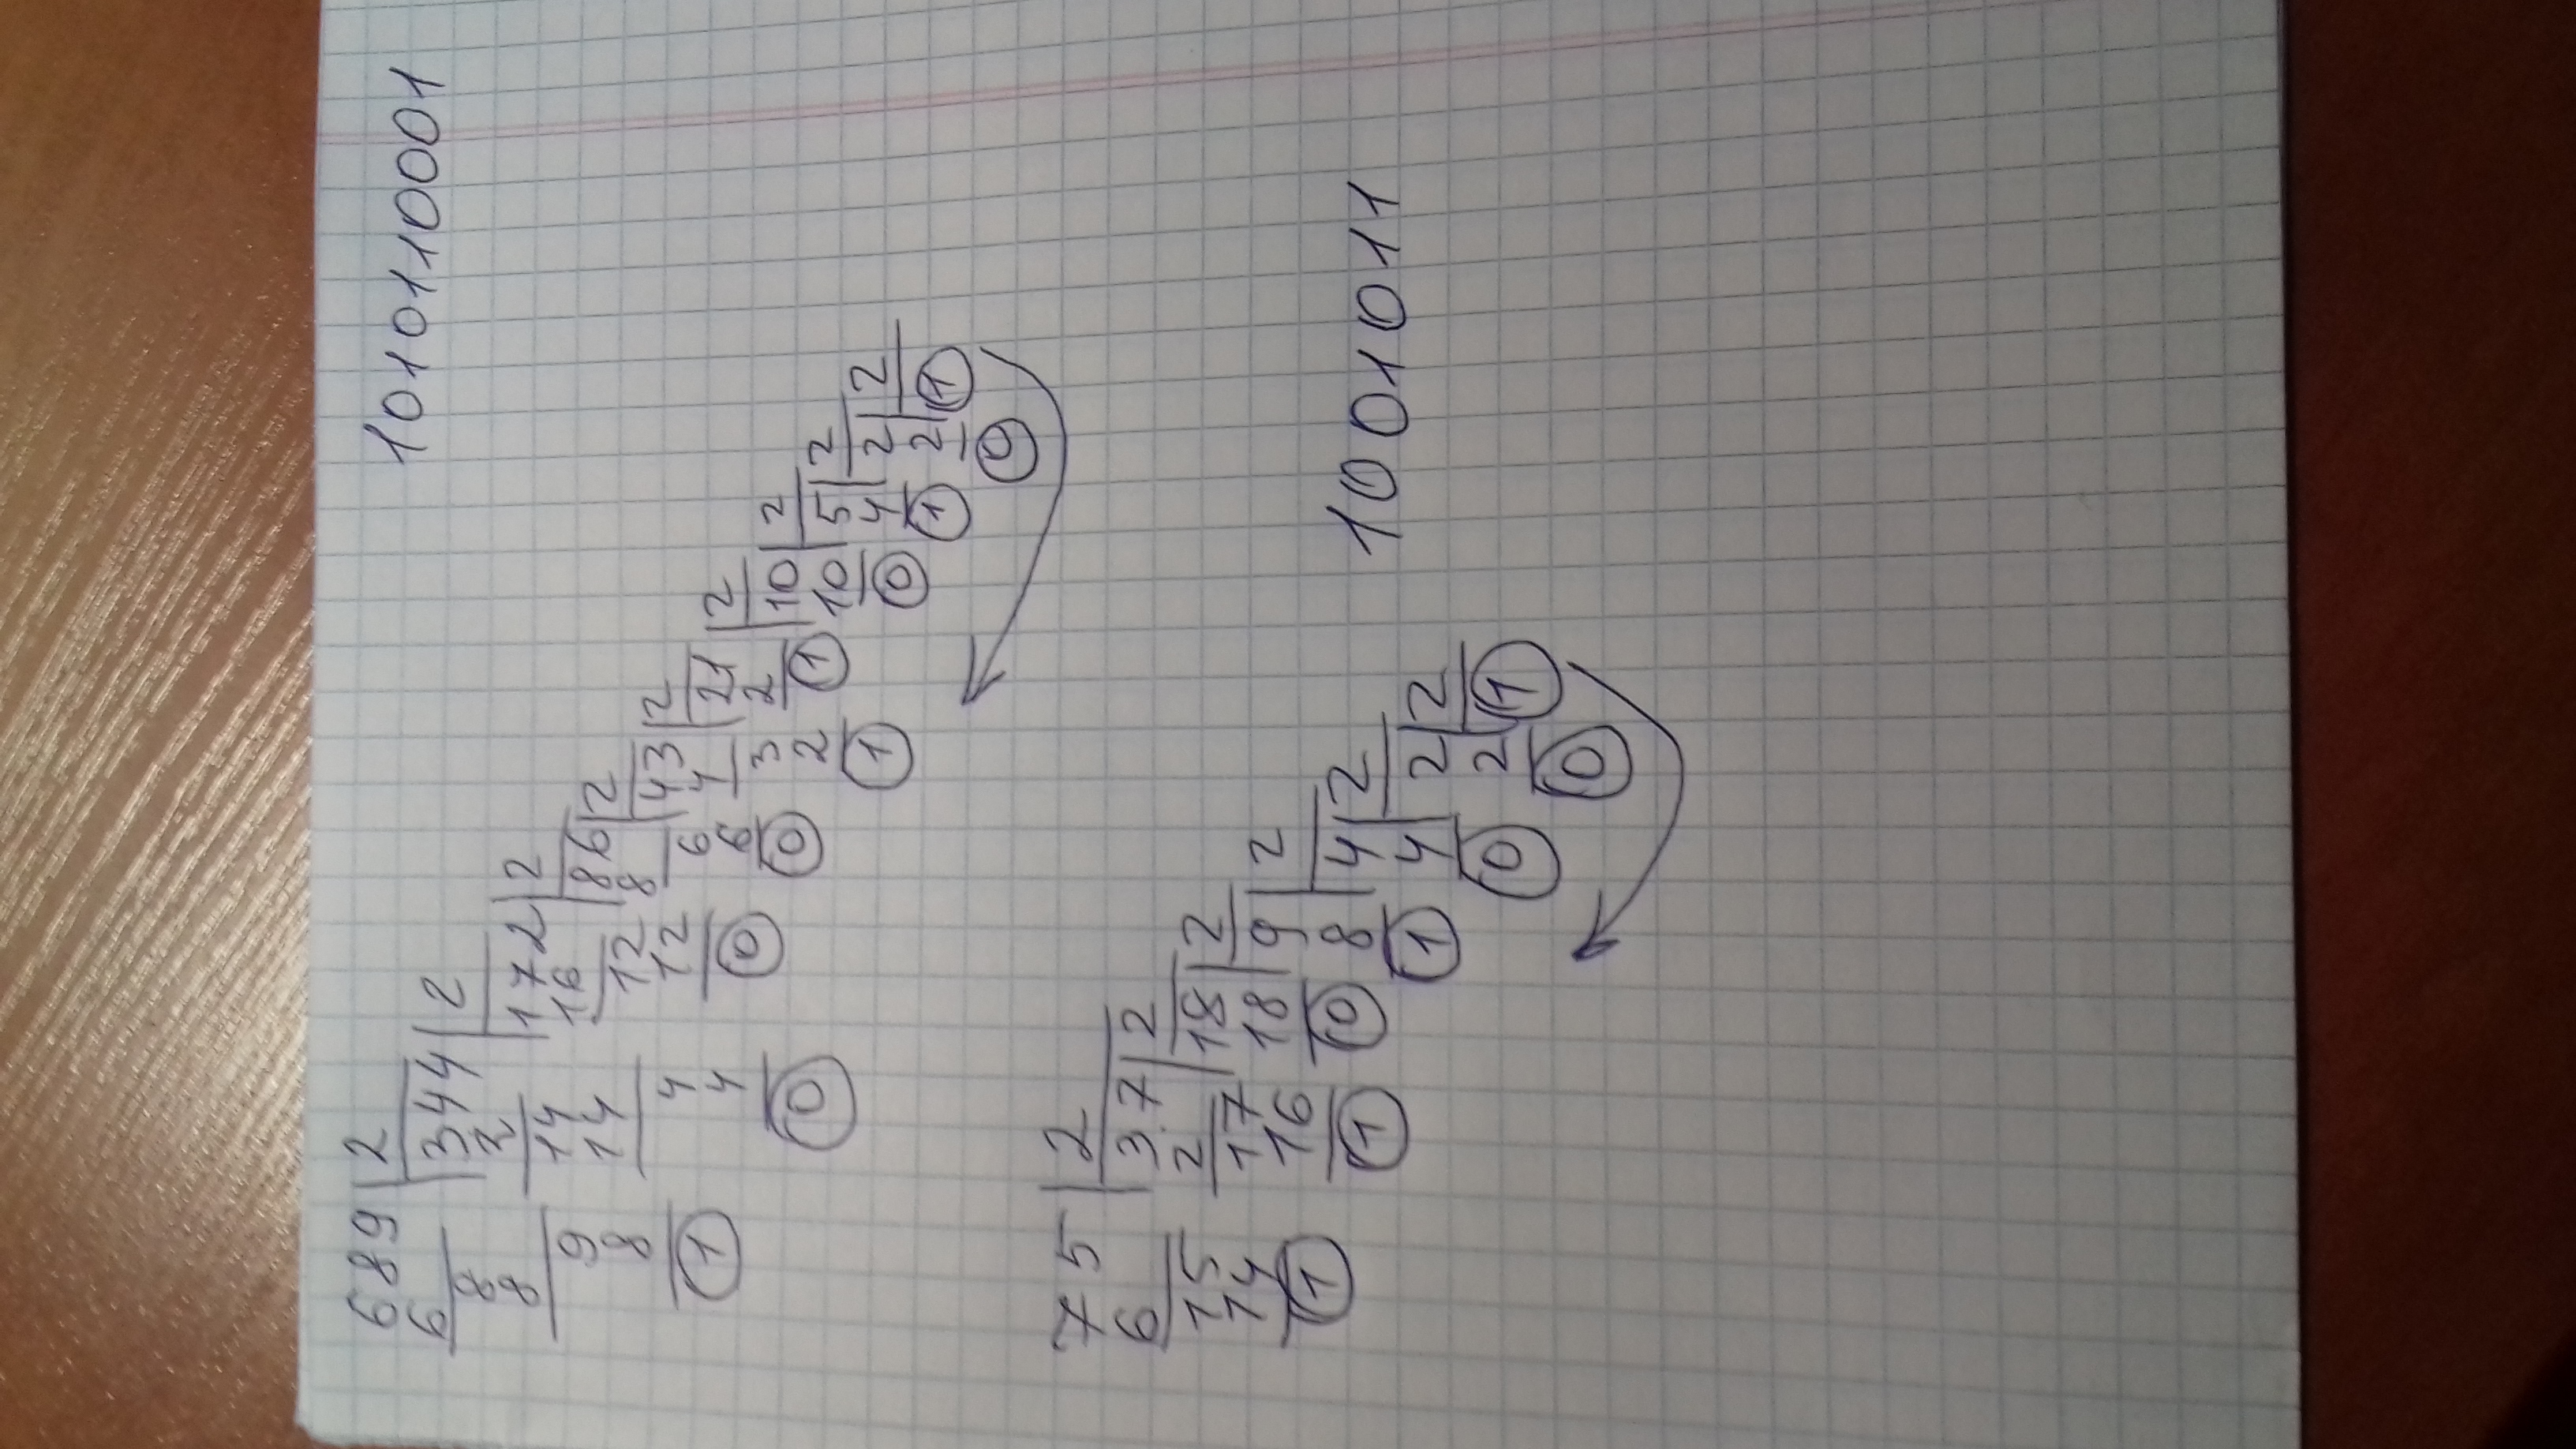 689 2 1010110001
6 344 2
8 2 172 2
8 14 16 86 2
9 14 12 8 43 2
8 4 12 6 4 21 2
1 4 0 6 3 2 10 2
0 0 2 1 10 5 2
1 0 4 2 2
1 2 1
0
75 2
6 37 2
15 2 18 2
14 17 18 9 2
1 16 0 8 4 2 1001011
1 1 4 2 2
0 2 1
0